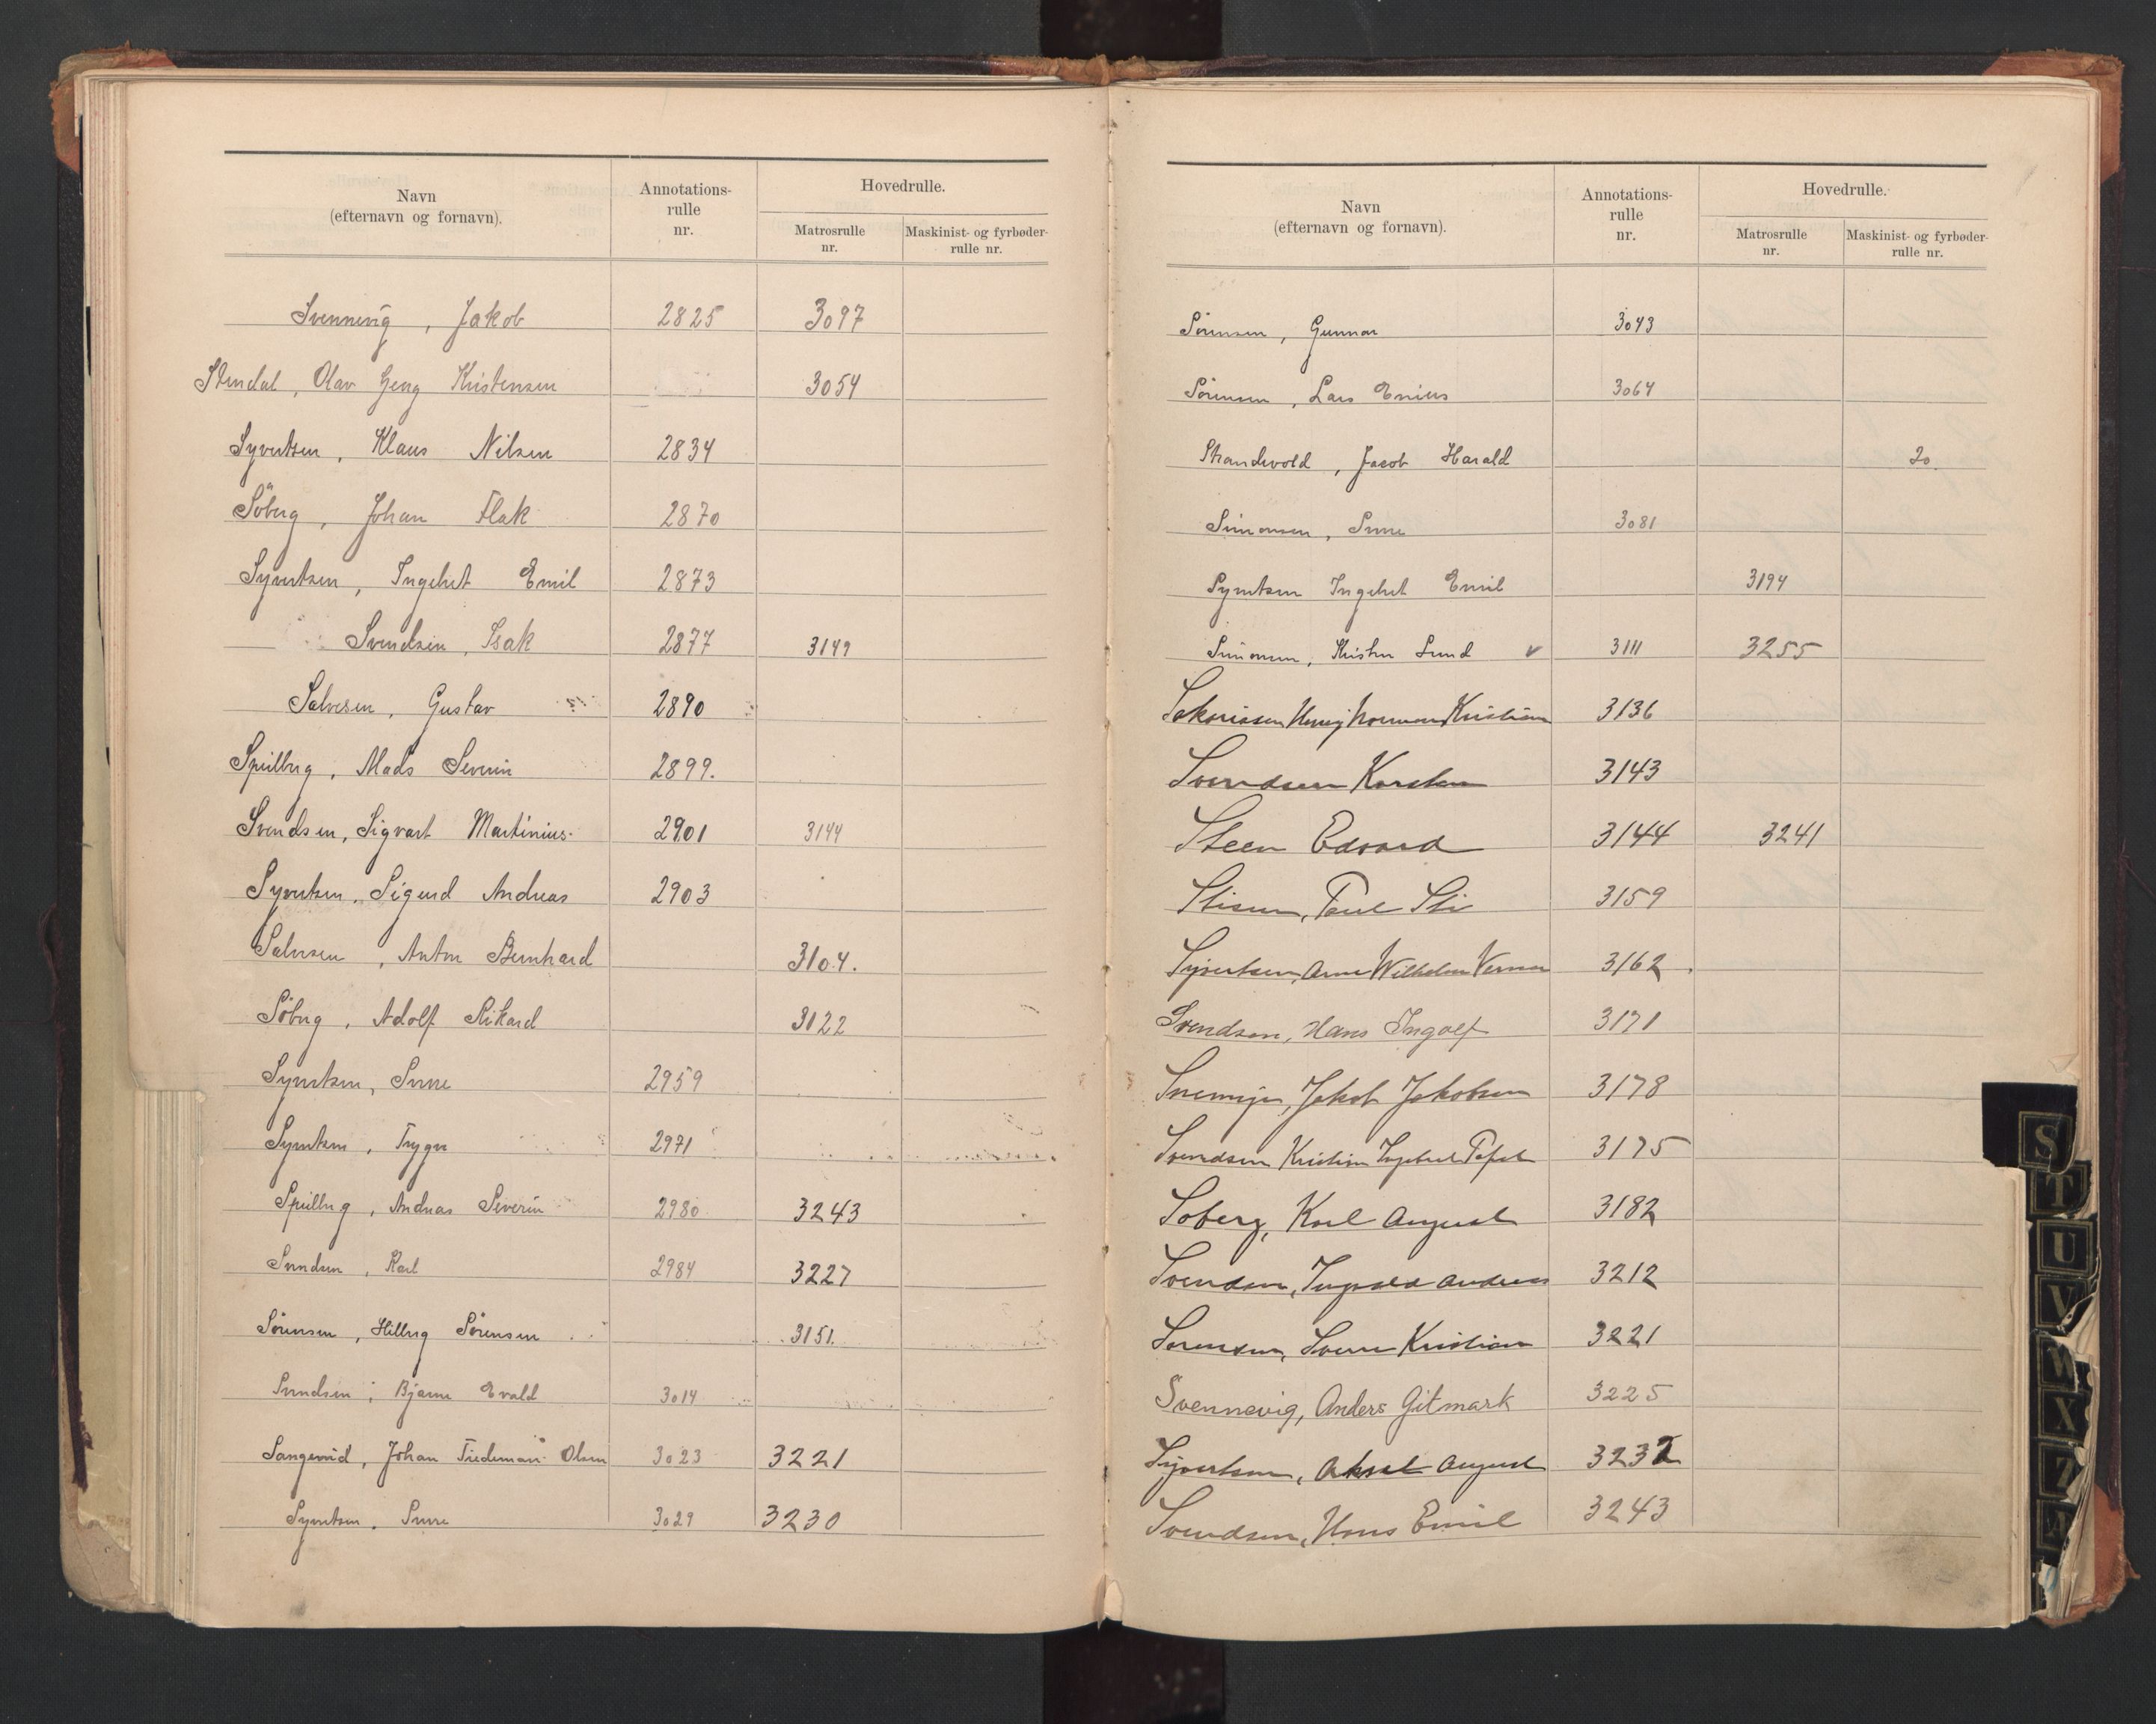 Navn
(efternavn og fornavn).
Annotations-
rulle
nr.
Hovedrulle.
Matrosrulle
nr.
Maskinist- og fyrbøder-
rulle nr.
Svennevig, Jakob 2825 3097
Stendal, Olav Georg Kristensen 3054
Syvertsen, Klaus Nilsen 2834
Söberg, Johan Flak 2870
Syvertsen, Ingebret Emil 2873
Svendsen, Isak 2877 3149
Salvesen, Gustav 2890
Speilberg, Mads Severin 2899.
Svendsen, Sigvart Martinius 2901 3144
Syvertsen, Sigurd Andreas 2903
Salvesen, Anton Bernhard 3104.
Söberg, Adolf Rikard 3122
Syvertsen, Sverre 2959
Syvertsen, Trygve 2971
Speilberg, Andreas Severin 2980 3243
Svendsen, Karl 2984 3227
Sörensen, Hilberg Sörensen 3151.
Svendsen, Bjarne Evald 3014
Sangesvid, Johan Tiedeman Olsen 3023 3221
Syvertsen, Sverre 3029 3230
Navn
(efternavn og fornavn).
Annotations-
rulle
nr.
Hovedrulle.
Matrosrulle
nr.
Maskinist- og fyrbøder-
rulle nr.
Sörensen, Gunnar 3043
Sörensen, Lars Enius 3064
Strandvold, Jacob Harald 20
Simonsen, Sverre 3081
Syvertsen Ingebret Emil 3194
Simonsen, Kristen Lund v 3111 3255
Sakariassen Henry Norman Kristian 3136
Svendsen Karsten 3143
Steen Edvard 3144 3241
Stisen, Paul Sti 3159
Syvertsen, Arne Wilhelm Verner 3162.
Svendsen, Hans Ingolf 3171
Jakob Jakobsen 3178
Svendsen Kristian Ingebret 3175
Soberg, Karl August 3182
Svendsen, Ingvald Andreas 3212
Sorensen, Sverre Kristian 3221
Svennevig, Anders Gitmark 3225
Syvertsen, Aksel August 3232
Svendsen, Hans Emil 3243
S
T
U
V
W
X
Z